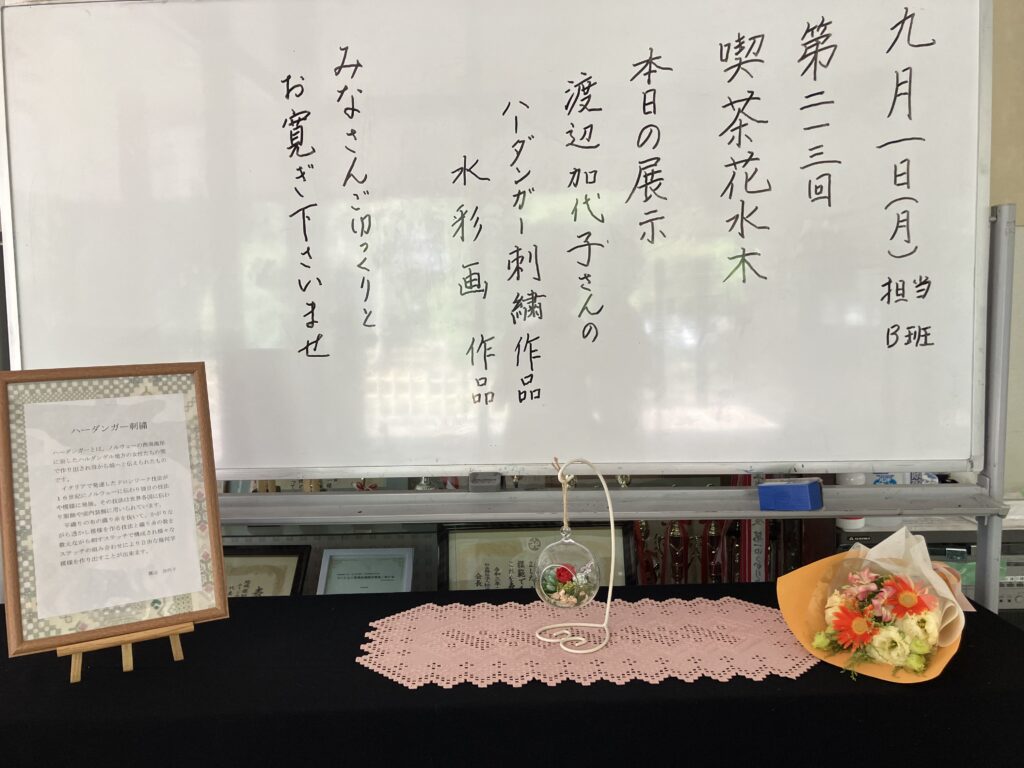 九月一日(月)担当
B班
第二一三回
喫茶花水木
本日の展示
渡辺加代子さんの
ハーダンガー刺繍作品
水彩画作品
みなさんごゆっくりと
お寛ぎ下さいませ
ハーダンガー刺繍
ハーダンガーとは、ノルウェーの西海海岸
に面したハルダンゲル地方の女性たちの間
で作り出され母から娘へと伝えられたもの
です。
イタリアで発達したドロンワーク技法が
16世紀にノルウェーに伝わり独自の技法
や模様に発展。その技法は世界各国に伝わ
り服飾や室内装飾に用いられています。
平織りの布の織り糸を抜いて、かがりな
がら透かし模様を作る技法と織り糸の数を
数えながら刺すステッチで構成され様々な
ステッチの組み合わせにより自由な幾何学
模様を作り出すことが出来ます。